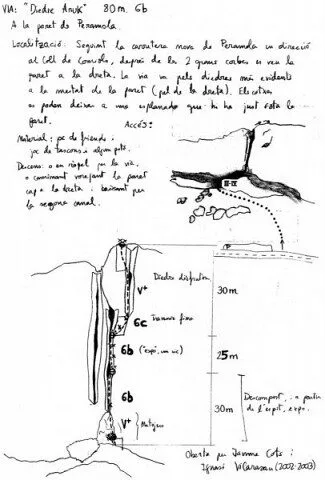 VIA: "Diedre ANUK" 80m. 6b
A la paret de Peramola.
Localització: Seguint la carretera nova de Peramola en direcció
al Coll de, després de les 2 grans corbes es veu la
paret a la dreta. La via va pels diedres més evidents
a la meitat de la paret (pel de la dreta). Els cotxes
es poden deixar a una esplanada que hi ha just sota la
paret.
Accés:
Material: joc de friends i
joc de tascons i algun pitó.
Descens: o en ràpel per la via,
o caminant vorejant la paret
cap a la dreta i baixant per
la segona canal.
III-IV
P
Diedre disfruton
V+
30m
6c Travessa fina
6b (1 espit, un vic)
25m
6b
Descompost, i a partir
de l'espit, expo.
30m
V+ Matojos
Oberta per Jaume Cots i
Ignasi (2002-2003)